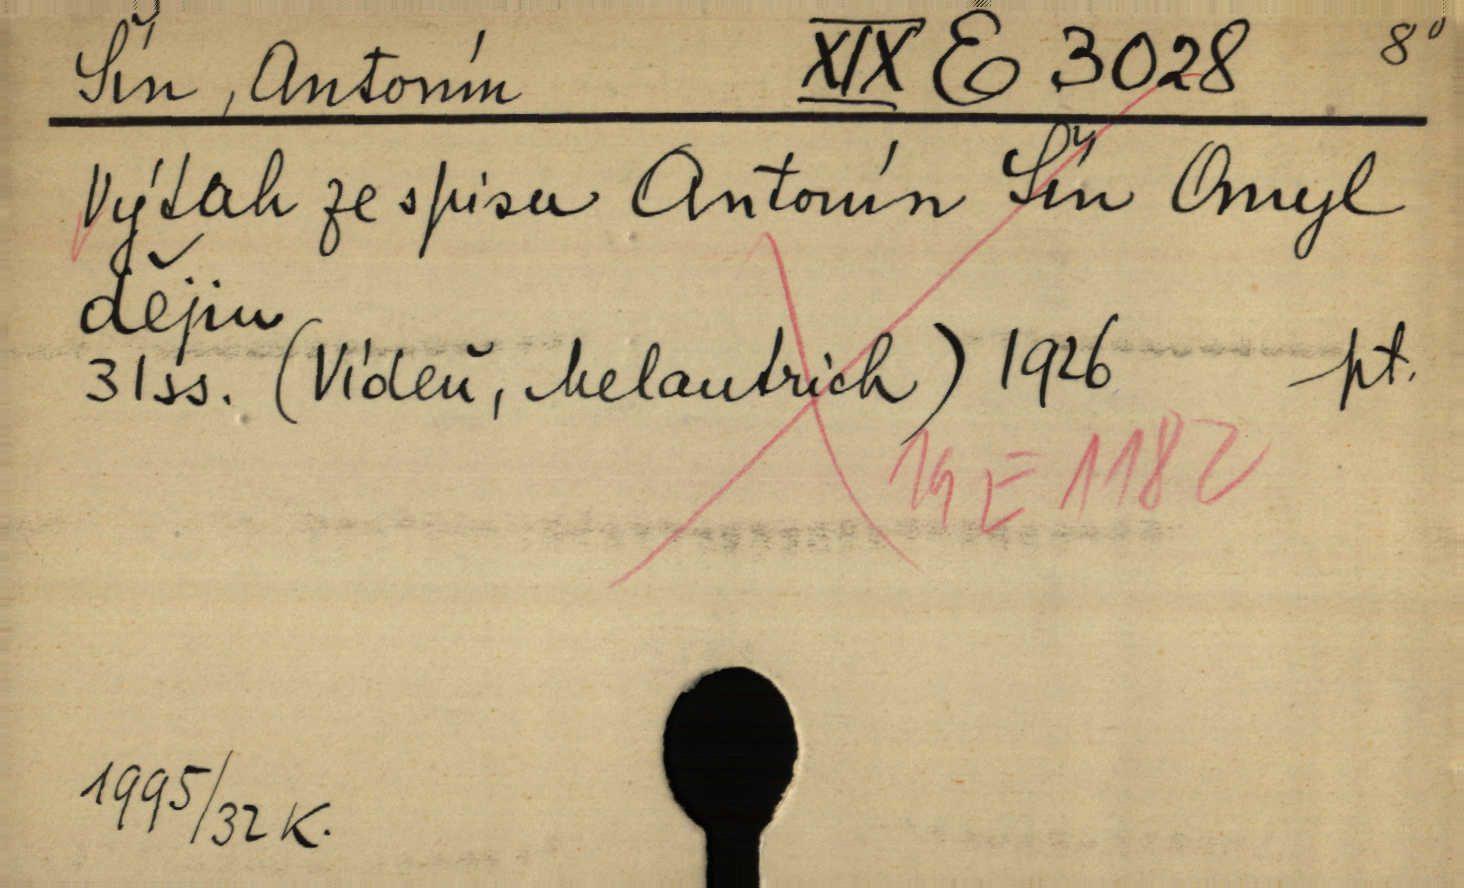 Šín, Antonín XIX E 3028 8°
Výťah ze spisu Antonín Šín Omyl
dějin
31 ss. (Vídeň, Melantrich) 1926 pt.
19 E 1182
1995/32 K.